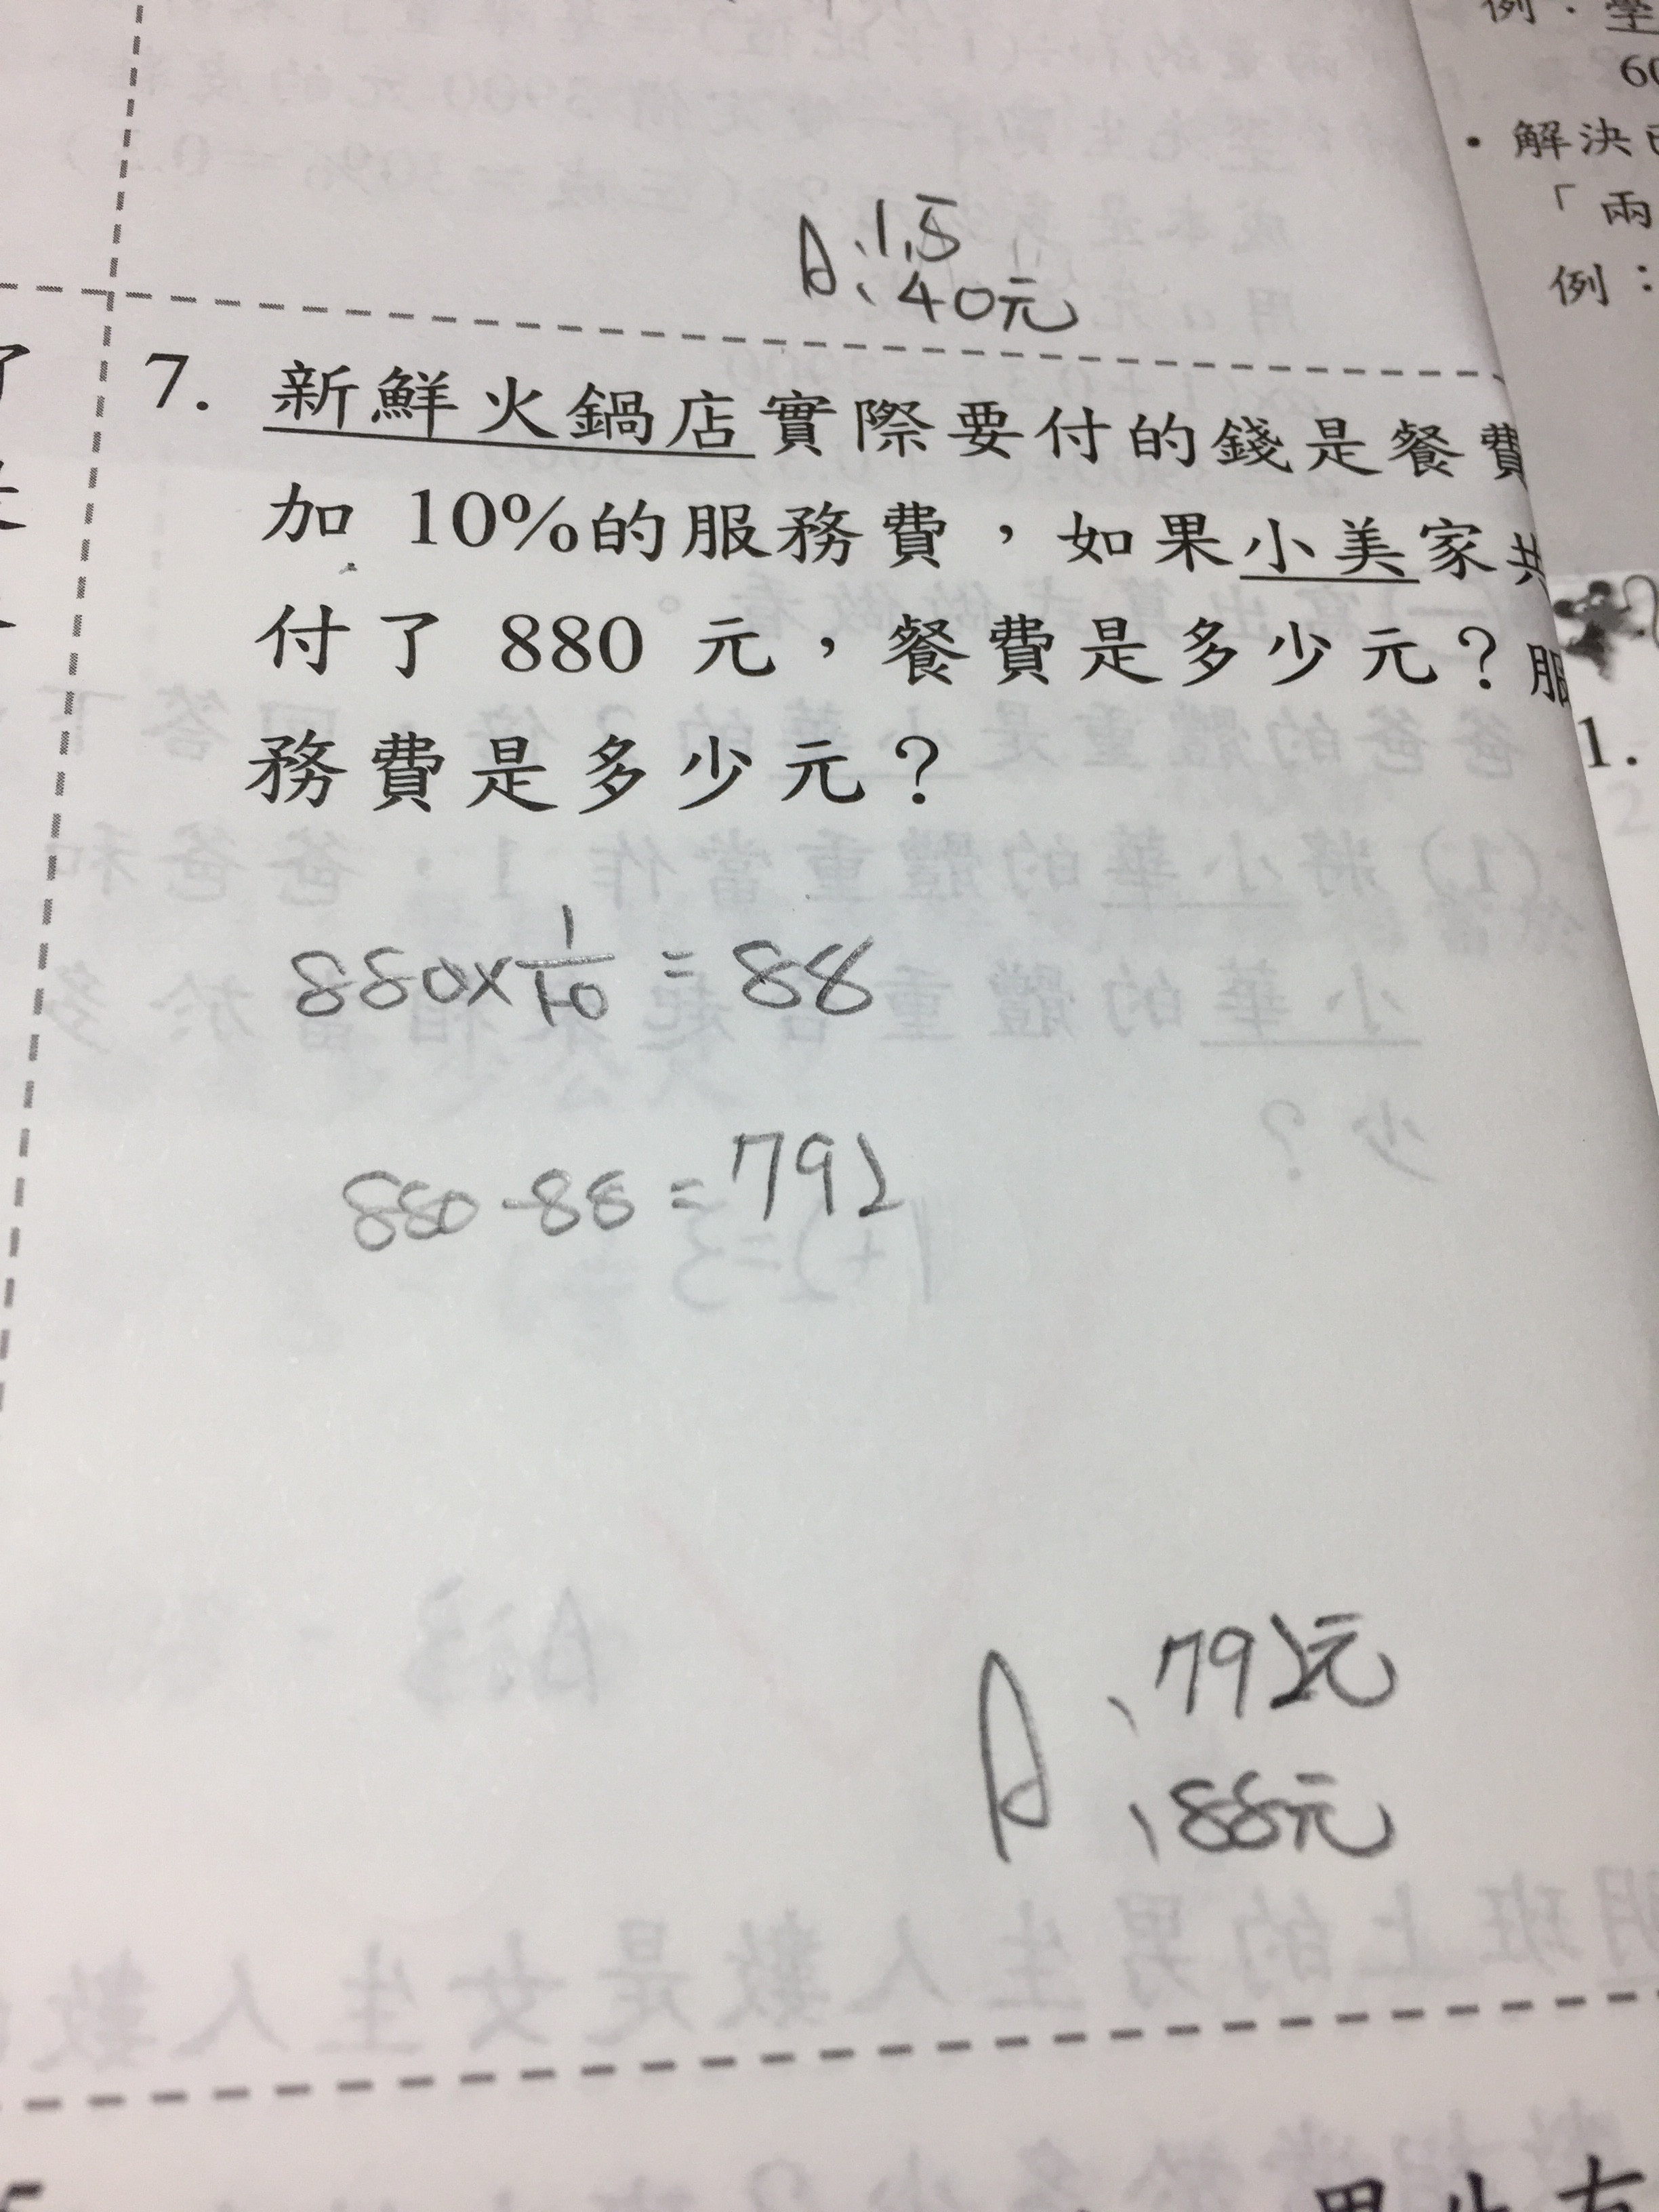 例：
60
・解決
「兩
例：
A:1.5
、40元
了
7. 新鮮火鍋店實際要付的錢是餐費
加 10%的服務費，如果小美家共
付了 880 元，餐費是多少元？服
務費是多少元？
1.
880×1/10=88
880-88=792
A、792元
、88元